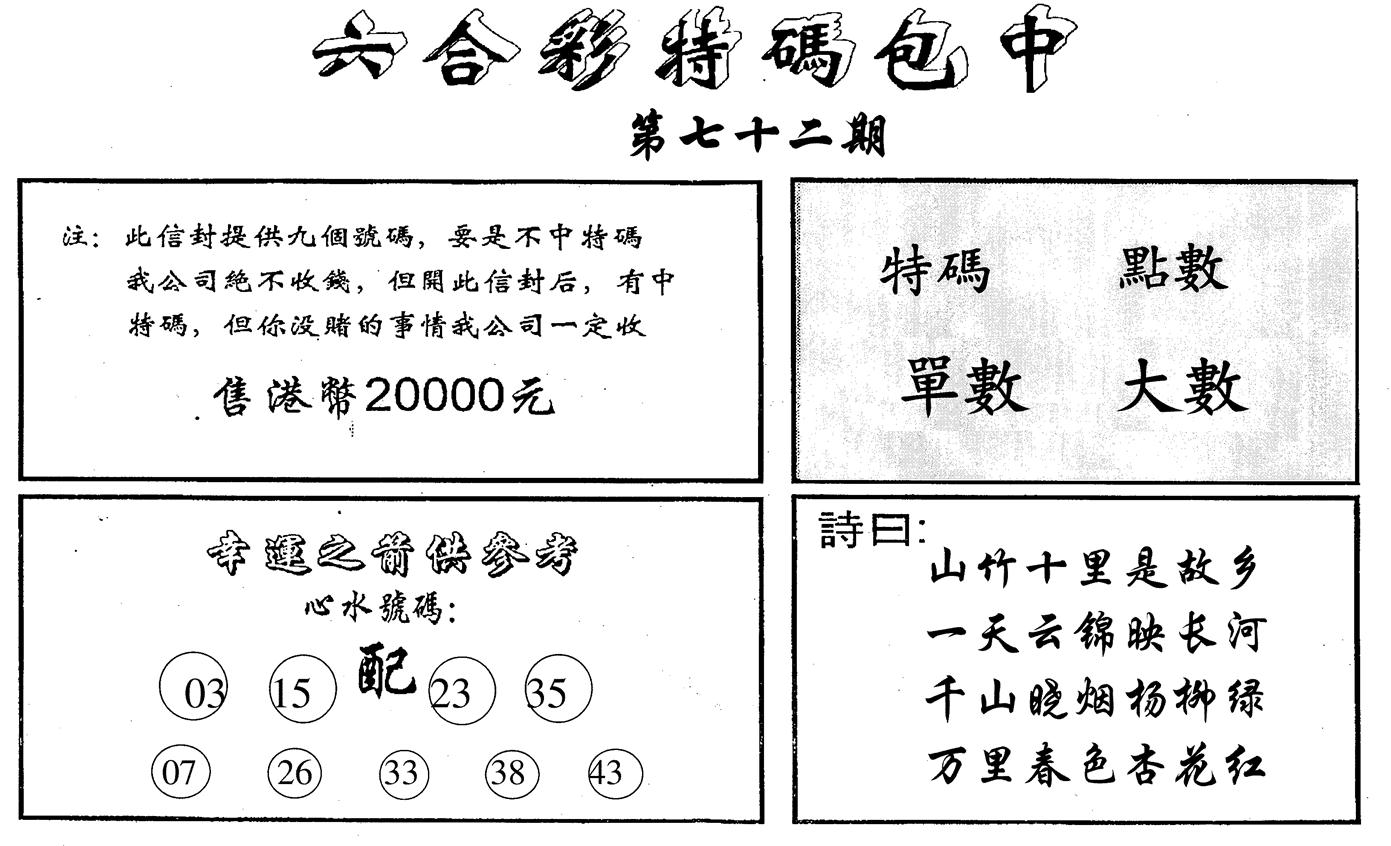 六合彩特碼包中
第七十二期
注：此信封提供九個號碼，要是不中特碼
我公司絕不收錢，但開此信封后，有中
特碼，但你没賭的事情我公司一定收
售港幣20000元
特碼 點數
單數 大數
幸運之箭供參考
心水號碼：
03 15 配 23 35
07 26 33 38 43
詩曰：
山竹十里是故乡
一天云锦映长河
千山晓烟杨柳绿
万里春色杏花红